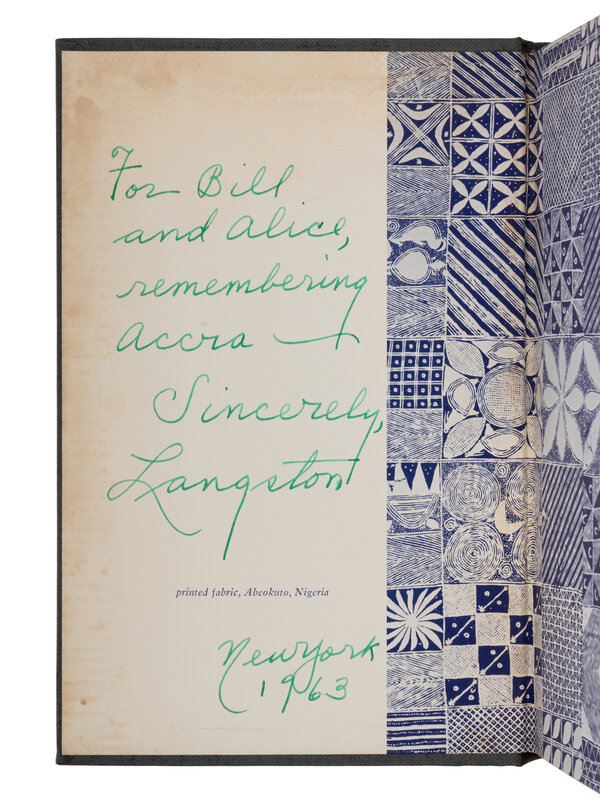 For Bill
and Alice,
remembering
Accra —
Sincerely,
Langston
printed fabric, Abeokuto, Nigeria
New York
1963